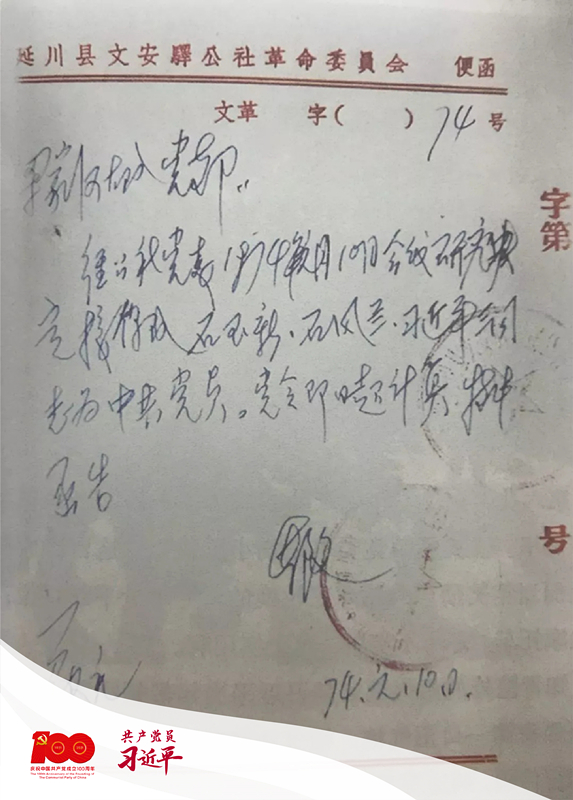 延川县文安驛公社革命委員会 便函
文革 字( ) 74 号
党部
经公社党委1974年1月10日会议研究决
定接 石玉新、石风兰、习近平 同
志为中共党员。党令即日起计算。特此
函告
74.元.10日.
字第
号
100
1921 2021
庆祝中国共产党成立100周年
The 100th Anniversary of the Founding of
The Communist Party of China
共产党员
习近平